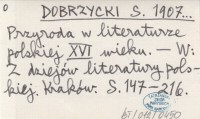 o DOBRZYCKI S. 1907...
Przyroda w literaturze
polskiej XVI wieku. — W:
Z dziejów literatury pols-
kiej. Kraków. S. 147-216.